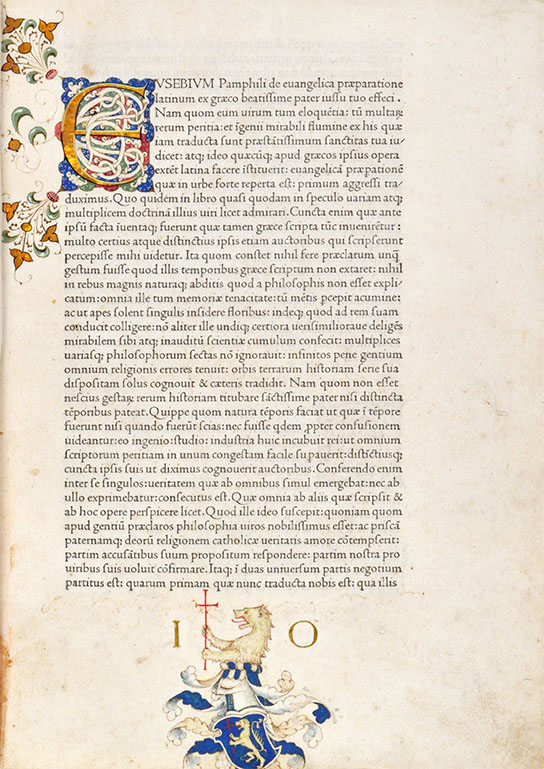 EVSEBIVM Pamphili de euangelica præparatione
latinum ex græco beatissime pater iussu tuo effeci.
Nam quom eum uirum tum eloquētia: tū multaꝝ
rerum peritia: et īgenii mirabili flumine ex his quæ
iam traducta sunt præstātissimum sanctitas tua iu/
dicet: atq; ideo quæcūq; apud græcos ipsius opera
extēt latina facere īstituerit: euangelicā præpationē
quæ in urbe forte reperta est: primum aggressi tra/
duximus. Quo quidem in libro quasi quodam in speculo uariam atq;
multiplicem doctrinā illius uiri licet admirari. Cuncta enim quæ ante
ipsū facta īuentaq; fuerunt quæ tamen græce scripta tūc inueniretur:
multo certius atque distinctius ipsis etiam auctoribus qui scripserunt
percepisse mihi uidetur. Ita quom constet nihil fere præclarum unq̄
gestum fuisse quod illis temporibus græce scriptum non extaret: nihil
in rebus magnis naturaq; abditis quod a philosophis non esset expli/
catum: omnia ille tum memoriæ tenacitate: tū mētis pcepit acumine:
ac ut apes solent singulis insidere floribus: indeq; quod ad rem suam
conducit colligere: nō aliter ille undiq; certiora uerisimilioraue deligēs
mirabilem sibi atq; inauditū scientiæ cumulum confecit: multiplices
uariasq; philosophorum sectas nō ignorauit: infinitos pene gentium
omnium religionis errores tenuit: orbis terrarum historiam serie sua
dispositam solus cognouit & cæteris tradidit. Nam quom non esset
nescius gestaꝝ rerum historiam titubare sāctissime pater nisi distincta
tēporibus pateat. Quippe quom natura tēporis faciat ut quæ ī tēpore
fuerunt nisi quando fuerūt scias: nec fuisse qdem ppter confusionem
uideantur: eo ingenio: studio: industria huic incubuit rei: ut omnium
scriptorum peritiam in unum congestam facile supauerit: distīctiusq;
cuncta ipsis suis ut diximus cognouerit auctoribus. Conferendo enim
inter se singulos: ueritatem quæ ab omnibus simul emergebat: nec ab
ullo exprimebatur: consecutus est. Quæ omnia ab aliis quæ scripsit &
ab hoc opere perspicere licet. Quod ille ideo suscepit: quoniam quom
apud gentiū præclaros philosophia uiros nobilissimus esset: ac priscā
paternamq; deorū religionem catholicæ ueritatis amore cōtempserit:
partim accusātibus suum propositum respondere: partim nostra pro
uiribus suis uoluit cōfirmare. Itaq; ī duas uniuersum partis negotium
partitus est: quarum primam quæ nunc traducta nobis est: qua illis
I O